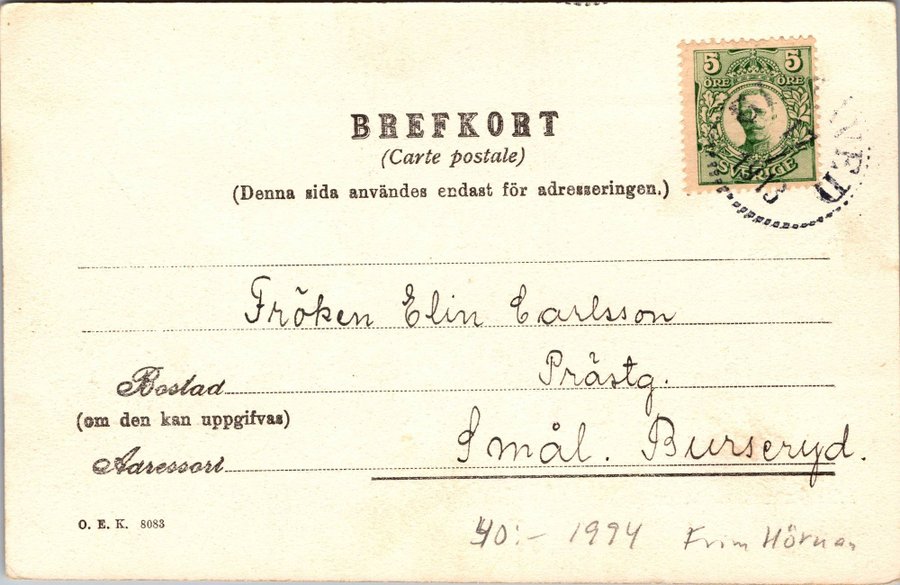 5 5
ÖRE ÖRE
SVERIGE
BREFKORT
(Carte postale)
(Denna sida användes endast för adresseringen.)
Fröken Elin Carlsson
Bostad Prästg.
(om den kan uppgifvas)
Adressort Smål. Burseryd.
O. E. K. 8083
40:- 1994 Frim Hörnan